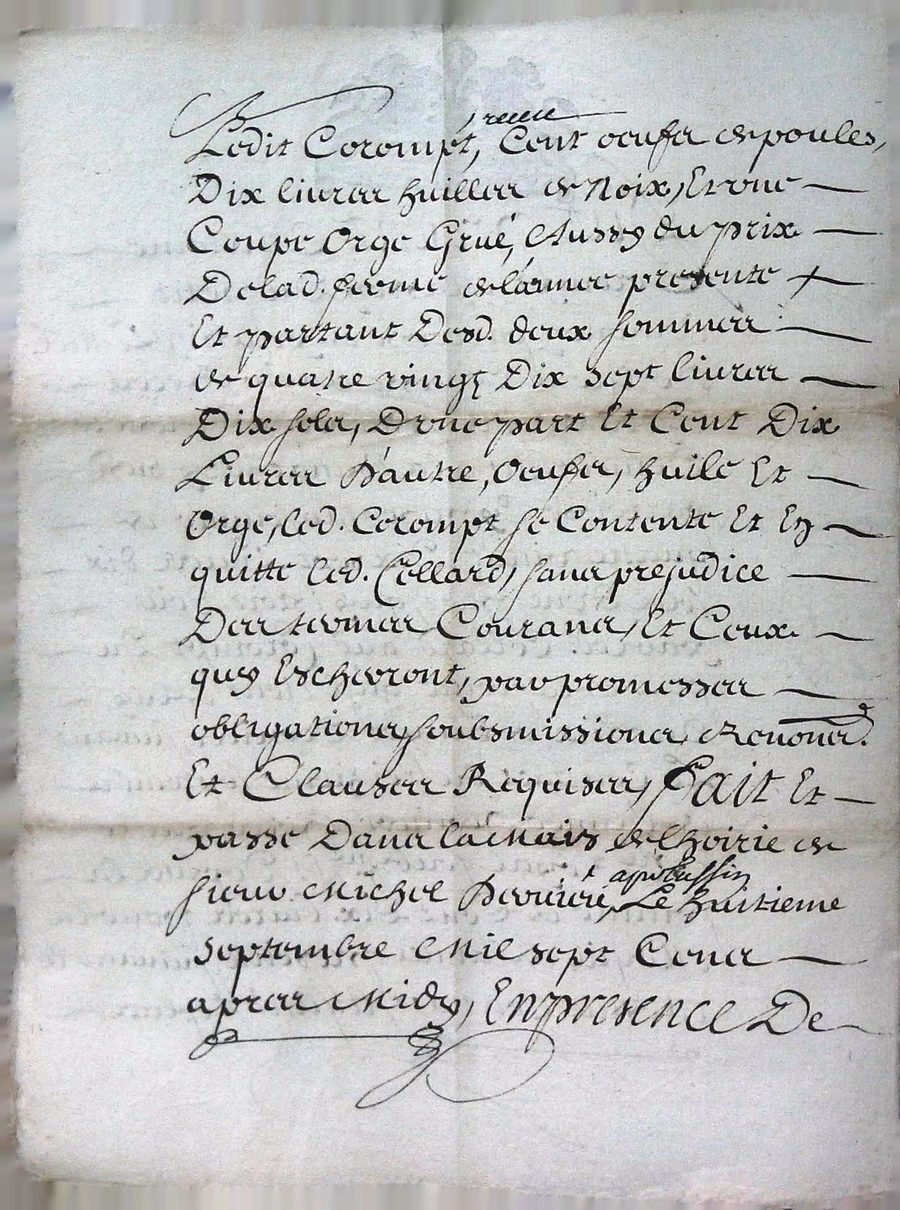 receu
Ledit Corompt, Cent oeufs de poules,
Dix livres huilles de Noix, Et une
Coupe Orge Grué, Aussy du prix
Delad. ferme de l'année presente
Et partant Desd. deux sommes
de quatre vingt Dix sept livres
Dix sols, D'une part Et Cent Dix
Livres D'autre, Oeufs, huile Et
Orge, led. Corompt se Contente Et En
quitte led. Collard, sans prejudice
Des termes Courans, Et Ceux
quy Escherront, par promesses
obligations, soubsmissions, Renons.
Et Clauses Requises, Fait Et
passé Dans la Mais de l'hoirie de
apotissin
sieur Michel Le huitieme
Septembre Mil sept Cens
apres Midy, En presence De